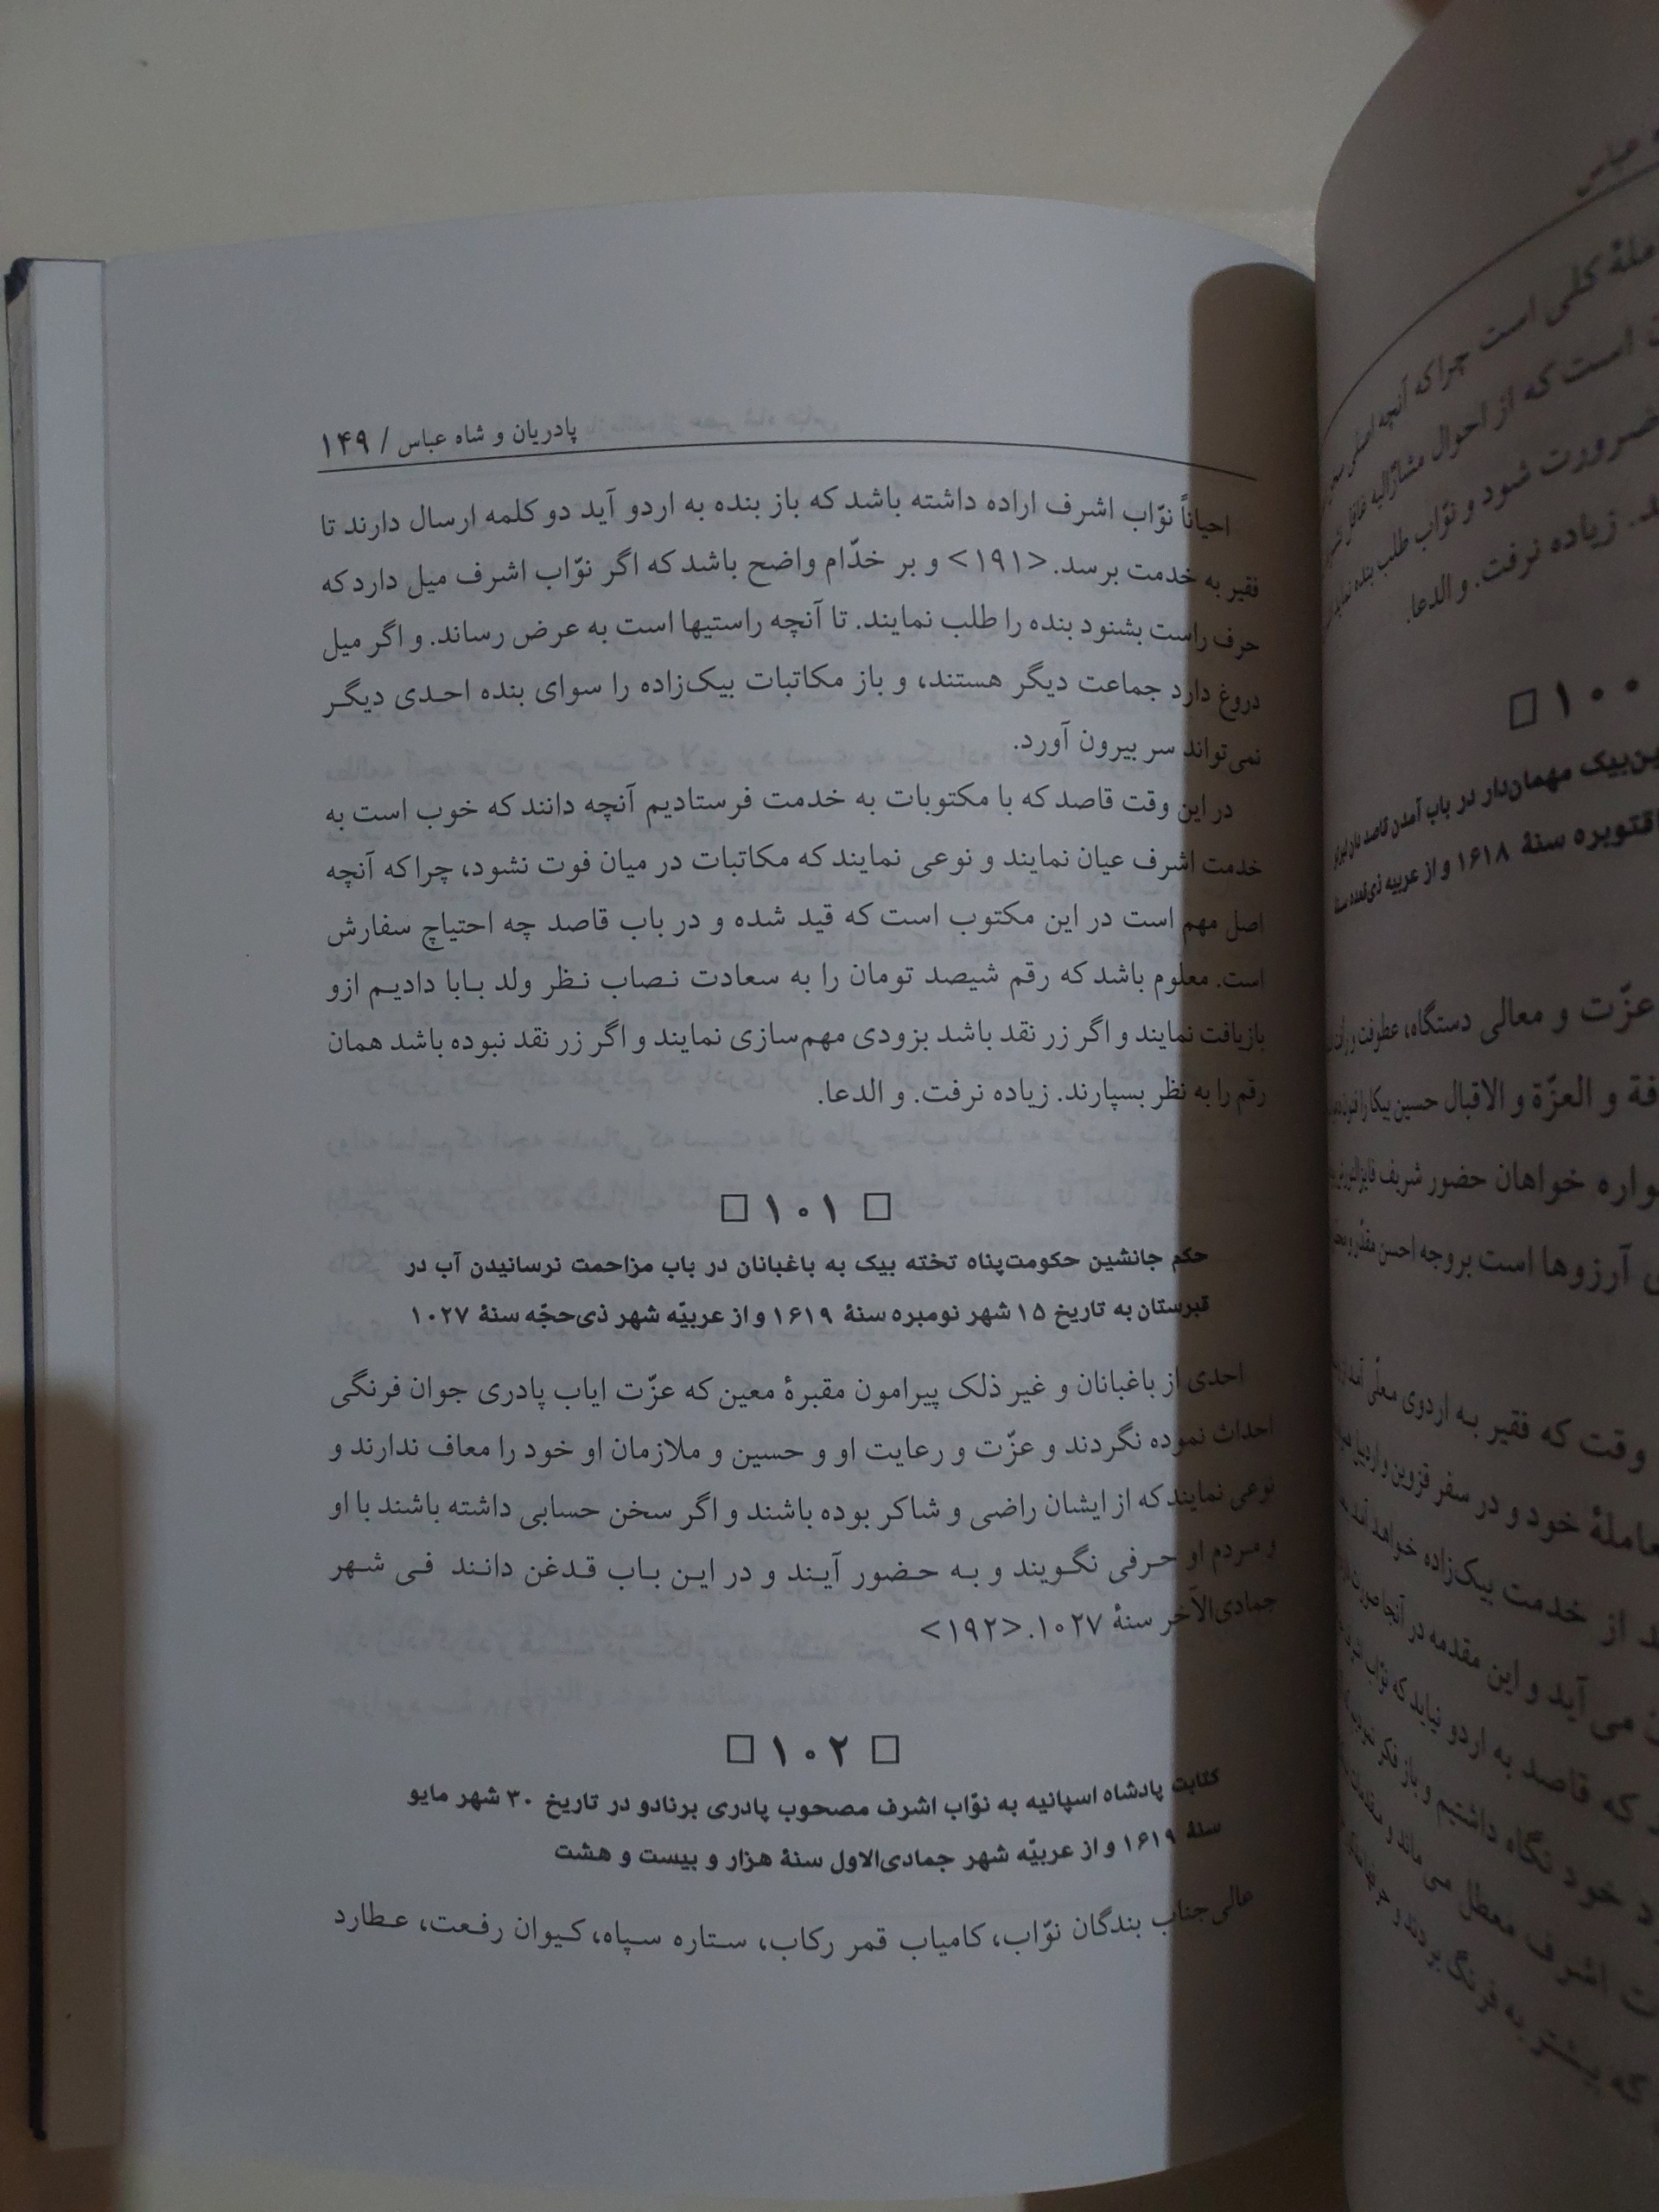 پادریان و شاه عباس / ۱۴۹
احیاناً نوّاب اشرف اراده داشته باشد که باز بنده به اردو آید دو کلمه ارسال دارند تا
فقیر به خدمت برسد. <۱۹۱> و بر خدّام واضح باشد که اگر نوّاب اشرف میل دارد که
حرف راست بشنود بنده را طلب نمایند. تا آنچه راستیها است به عرض رساند. و اگر میل
دروغ دارد جماعت دیگر هستند، و باز مکاتبات بیک‌زاده را سوای بنده احدی دیگر
نمی‌تواند سر بیرون آورد.
در این وقت قاصد که با مکتوبات به خدمت فرستادیم آنچه دانند که خوب است به
خدمت اشرف عیان نمایند و نوعی نمایند که مکاتبات در میان فوت نشود، چراکه آنچه
اصل مهم است در این مکتوب است که قید شده و در باب قاصد چه احتیاج سفارش
است. معلوم باشد که رقم شیصد تومان را به سعادت نصاب نظر ولد بابا دادیم ازو
بازیافت نمایند و اگر زر نقد باشد بزودی مهم‌سازی نمایند و اگر زر نقد نبوده باشد همان
رقم را به نظر بسپارند. زیاده نرفت. و الدعا.
□ ۱۰۱ □
حکم جانشین حکومت‌پناه تخته بیک به باغبانان در باب مزاحمت نرسانیدن آب در
قبرستان به تاریخ ۱۵ شهر نومبره سنهٔ ۱۶۱۹ و از عربیّه شهر ذی‌حجّه سنهٔ ۱۰۲۷
احدی از باغبانان و غیر ذلک پیرامون مقبرهٔ معین که عزّت ایاب پادری جوان فرنگی
احداث نموده نگردند و عزّت و رعایت او و حسین و ملازمان او خود را معاف ندارند و
نوعی نمایند که از ایشان راضی و شاکر بوده باشند و اگر سخن حسابی داشته باشند با او
و مردم او حرفی نگویند و به حضور آیند و در این باب قدغن دانند فی شهر
جمادی‌الآخر سنهٔ ۱۰۲۷. <۱۹۲>
□ ۱۰۲ □
کتابت پادشاه اسپانیه به نوّاب اشرف مصحوب پادری برنادو در تاریخ ۳۰ شهر مایو
سنهٔ ۱۶۱۹ و از عربیّه شهر جمادی‌الاول سنهٔ هزار و بیست و هشت
عالی‌جناب بندگان نوّاب، کامیاب قمر رکاب، ستاره سپاه، کیوان رفعت، عطارد
عباس
کلی است چراکه آنچه اصلی
است که از احوال مشارٌالیه غافل
ضرورت شود و نوّاب طلب بنده
زیاده نرفت. و الدعا.
۱۰۰ □
بیک مهمان‌دار در باب آمدن قاصد
سنهٔ ۱۶۱۸ و از عربیه ذی‌قعده
عزّت و معالی دستگاه، عطوفت و
و العزّة و الاقبال حسین بیکا را
خواهان حضور شریف
آرزوها است بروجه احسن
وقت که فقیر به اردوی معلّی
خود و در سفر قزوین و اردبیل
از خدمت بیک‌زاده خواهد آمد
می آید و این مقدمه در آنجا صورت
که قاصد به اردو نیاید که نوّاب
خود نگاه داشتیم و باز فکر
اشرف معطل می ماند و
که پیشتر به فرنگ بردند و